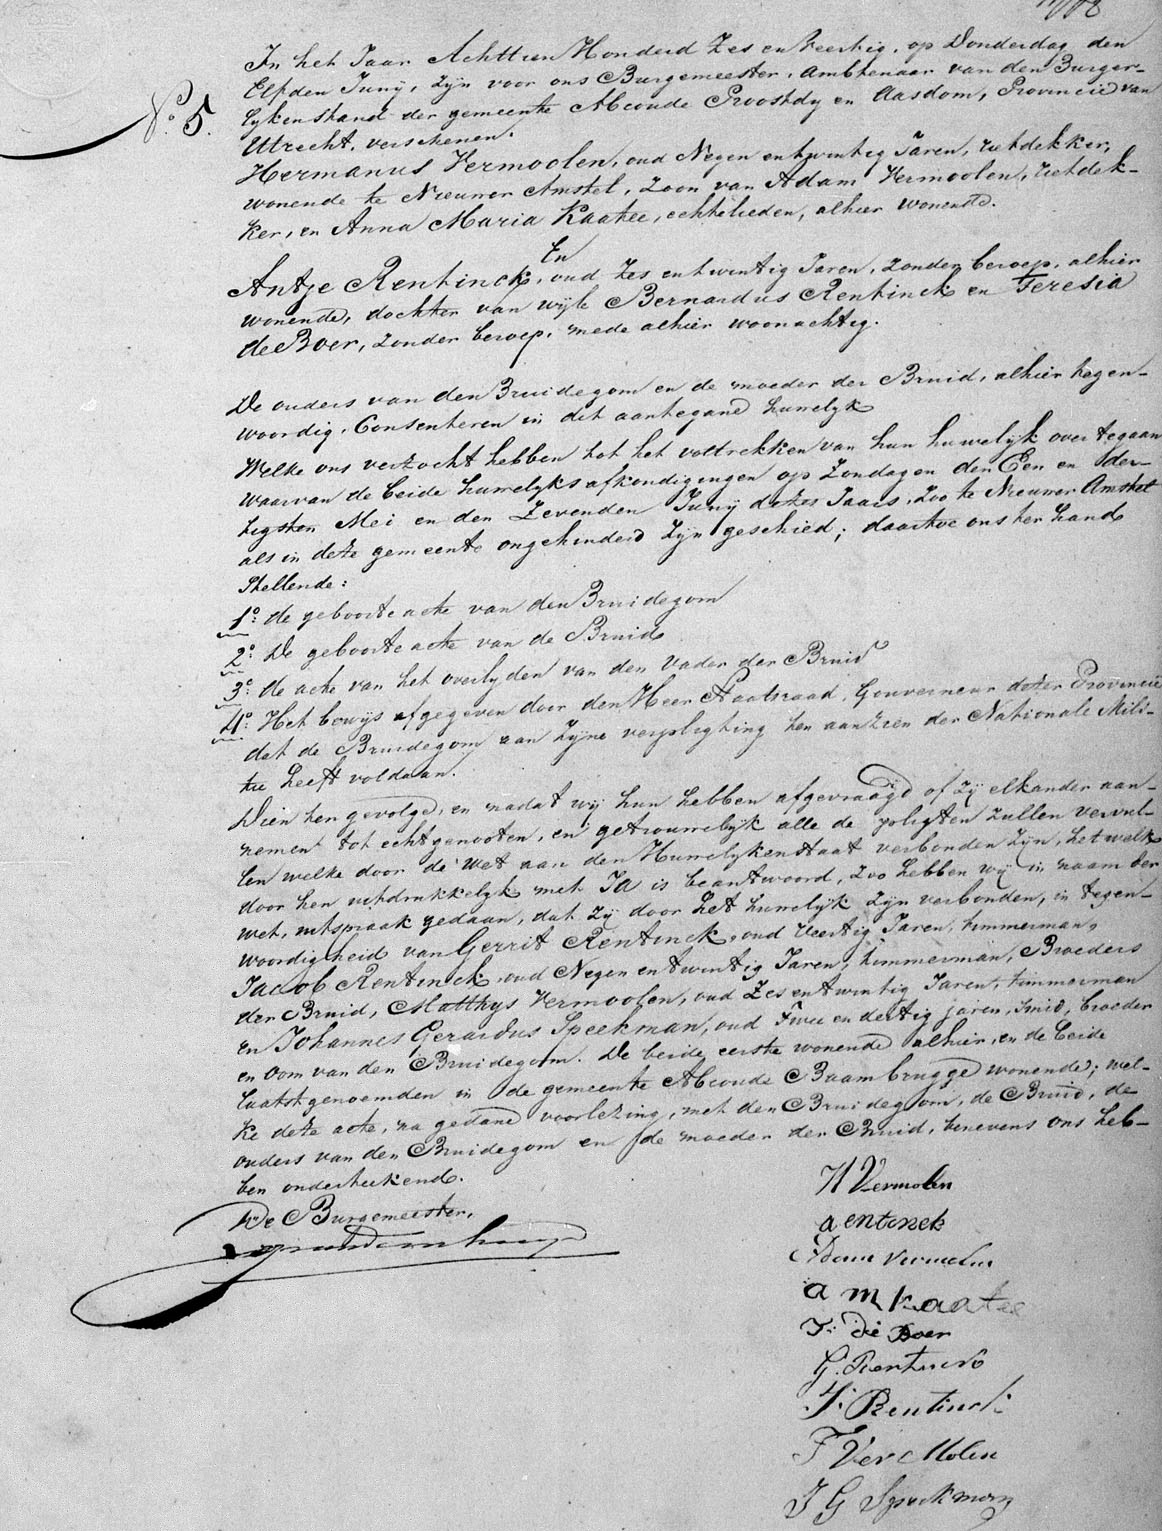 No. 5.
In het Jaar Achttien Honderd Zes en Veertig, op Donderdag den
Elfden Junij, zijn voor ons Burgemeester, Ambtenaar van den Burger-
lijken stand der gemeente Abcoude Proostdy en Aasdom, Provincie van
Utrecht, verschenen.
Hermanus Vermoolen, oud Negen en twintig Jaren, rietdekker,
wonende te Nieuwer Amstel, Zoon van Adam Vermoolen, rietdek-
ker, en Anna Maria Kaatee, echtelieden, alhier wonende.
En
Antje Rentinck, oud Zes en twintig Jaren, zonder beroep, alhier
wonende, dochter van wijle Bernardus Rentinck en Teresia
de Boer, zonder beroep, mede alhier woonachtig.
De ouders van den Bruidegom en de moeder der Bruid, alhier tegen-
woordig, Consenteren in dit aantegane huwelyk
Welke ons verzocht hebben tot het voltrekken van hun huwelijk overtegaan
waarvan de beide huwelyks afkondigingen op Zondagen den Een en der-
tigsten Mei en den Zevenden Junij dezes Jaars, Zoo te Nieuwer Amstel
als in deze gemeente ongehinderd Zijn geschied; daartoe ons ter hand
Stellende:
1o: de geboorte acte van den Bruidegom
2o: De geboorte acte van de Bruid
3o: de acte van het overlyden van den vader der Bruid
4o: Het bewijs afgegeven door den Heer Staatsraad, Gouverneur dezer Provincie
dat de Bruidegom aan Zijne verpligting ten aanzien der Nationale Mili-
tie heeft voldaan.
Dien ten gevolge, en nadat wij hun hebben afgevraagd of Zij elkander aan-
nemen tot echtgenooten, en getrouwelijk alle de pligten zullen vervul-
len welke door de wet aan den Huwelykenstaat verbonden Zijn, het welk
door hen uitdrukkelijk met Ja is beantwoord, Zoo hebben wij in naam der
wet, uitspraak gedaan, dat Zij door het huwelijk Zijn verbonden, in tegen-
woordigheid van Gerrit Rentinck, oud Veertig Jaren, timmerman,
Jacob Rentinck, oud Negen en twintig Jaren, timmerman, Broeders
der Bruid, Matthys Vermoolen, oud Zes en twintig Jaren, timmerman
en Johannes Gerardus Speekman, oud Twee en dertig jaren, smid, broeder
en Oom van den Bruidegom. De beide eerste wonende alhier, en de beide
laatstgenoemden in de gemeente Abcoude Baambrugge wonende; wel-
ke deze acte, na gedane voorlezing, met den Bruidegom, de Bruid, de
ouders van den Bruidegom en de moeder der Bruid, benevens ons heb-
ben onderteekend.
De Burgemeester,
H Vermolen
a entinck
Adam Vermolen
a m kaatee
T: de Boer
G. Rentinck
J: Rentinck
Ver Molen
J G Speekman